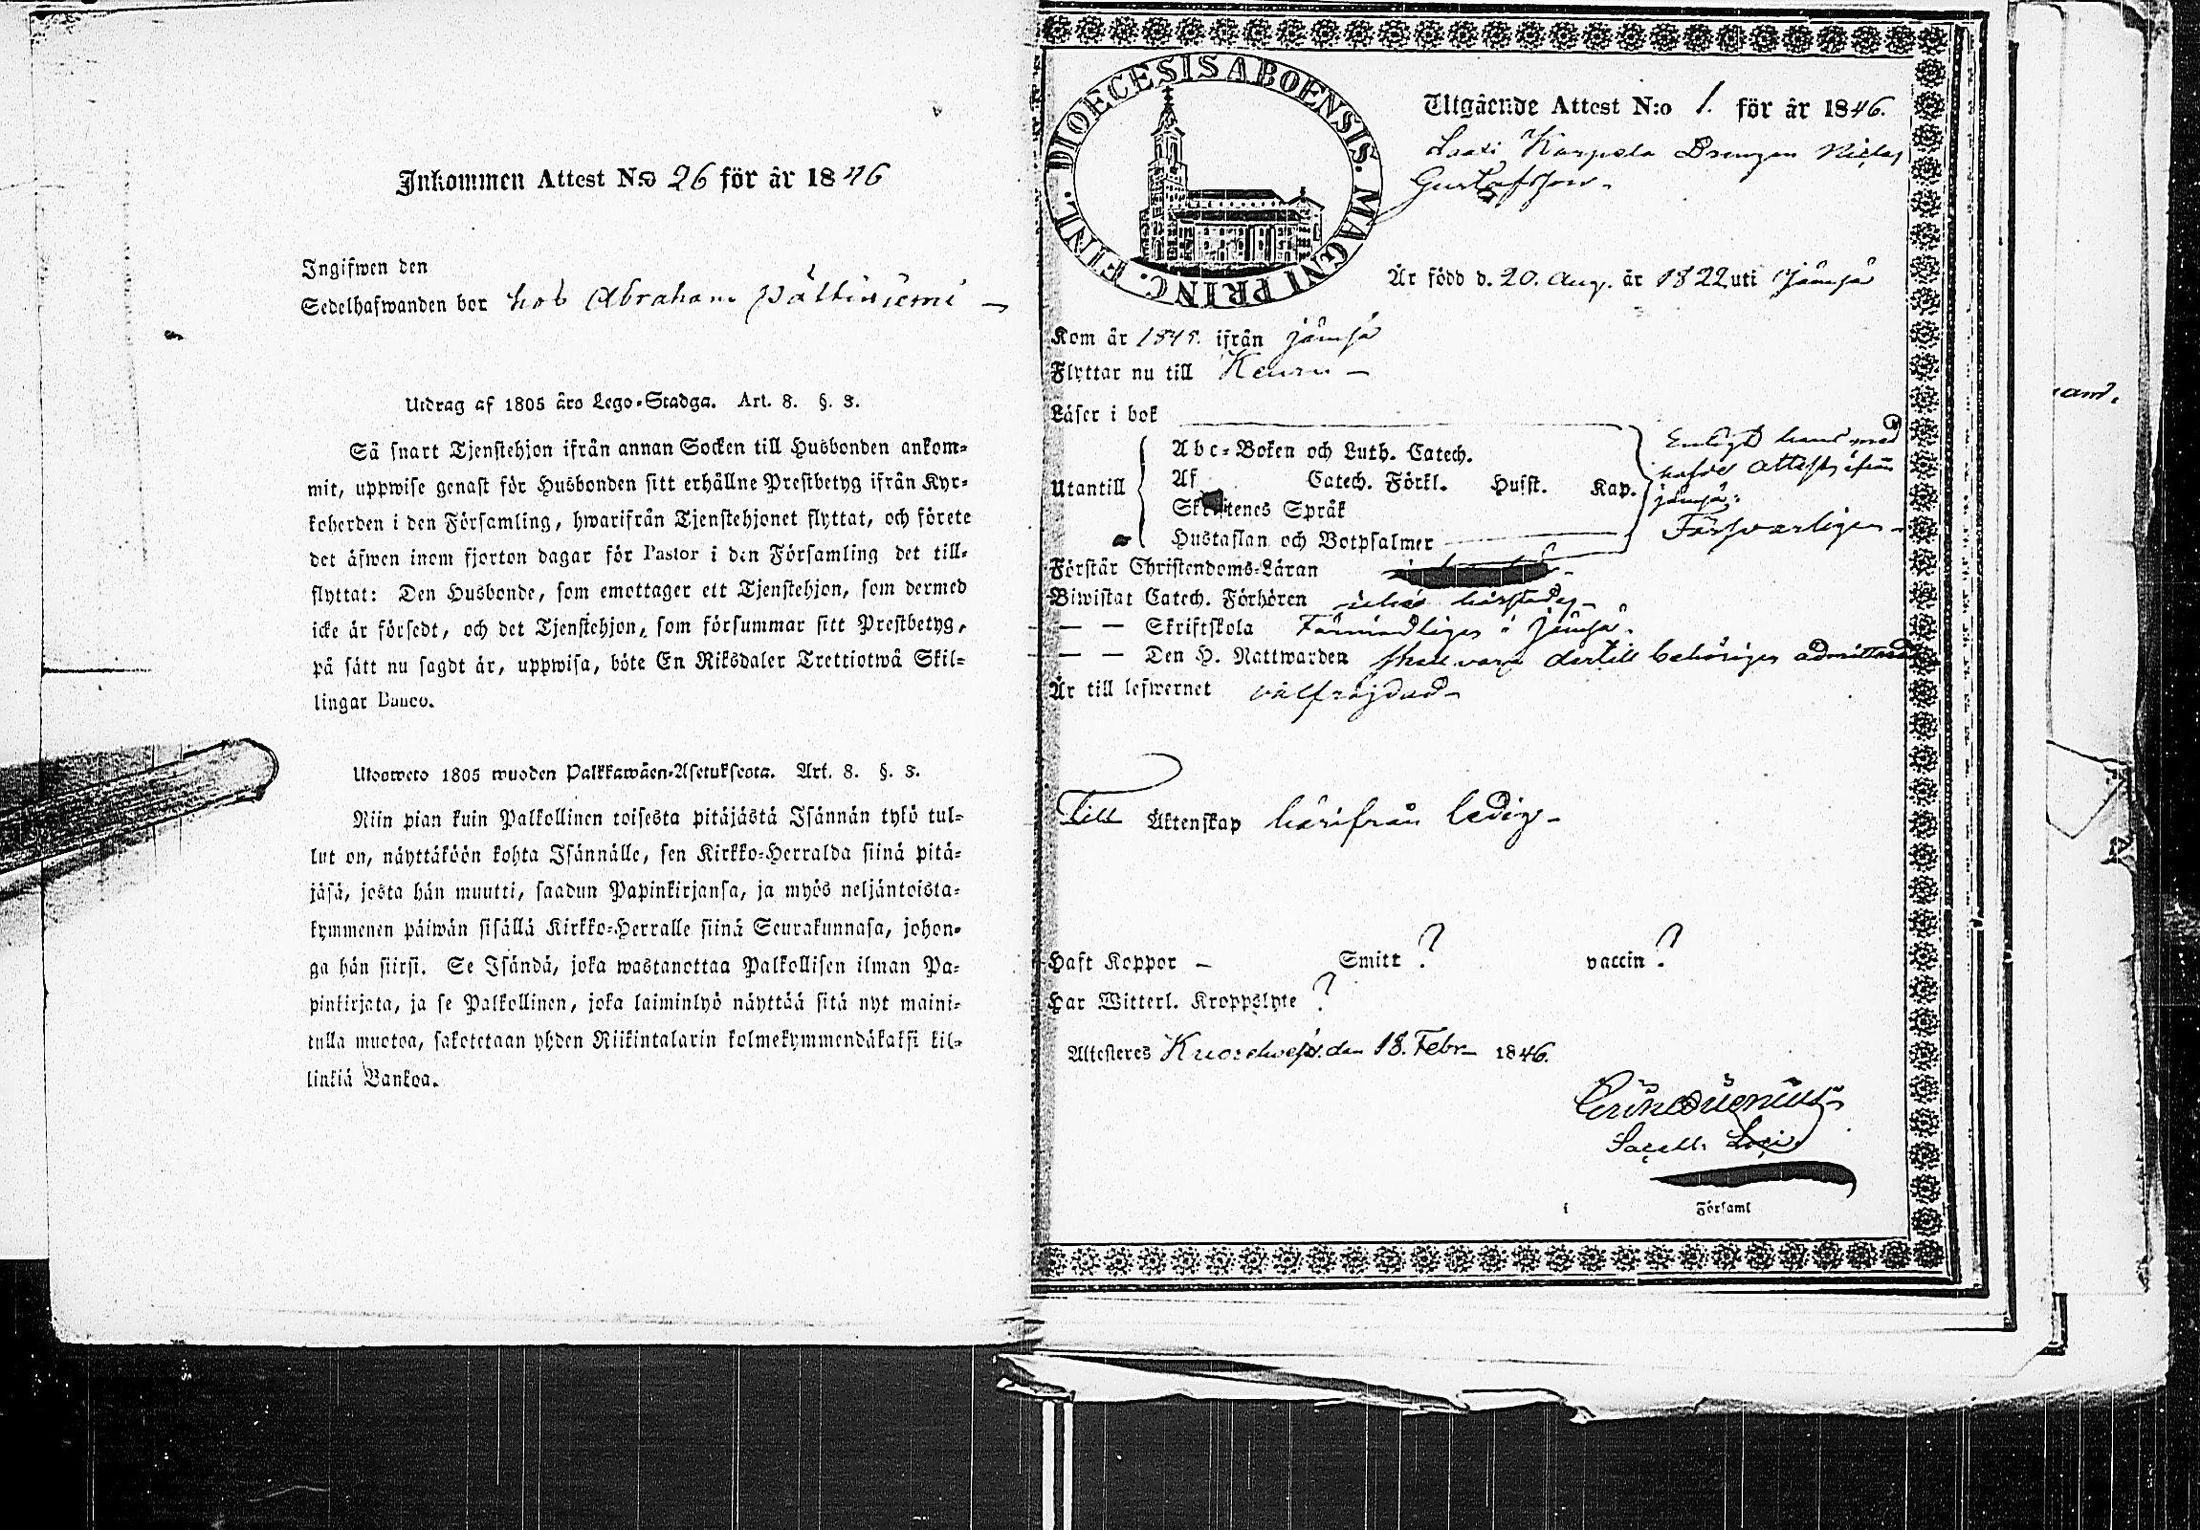 Inkommen Attest N:o 26 för år 1846
Ingifwen den
Sedelhafwanden bor hos Abraham Pältiniemi
Utdrag af 1805 års Lego-Stadga. Art. 8. §. 3.
Så snart Tjenstehjon ifrån annan Socken till Husbonden ankom-
mit, uppwise genast för Husbonden sitt erhållne Prestbetyg ifrån Kyr-
koherden i den Församling, hwarifrån Tjenstehjonet flyttat, och förete
det äfwen inom fjorton dagar för Pastor i den Församling det till-
flyttat: Den Husbonde, som emottager ett Tjenstehjon, som dermed
icke är försedt, och det Tjenstehjon, som försummar sitt Prestbetyg,
på sätt nu sagdt är, uppwisa, böte En Riksdaler Trettiotwå Skil-
lingar Banco.
Ulosweto 1805 wuoden Palkkawäen-Asetuksesta. Art. 8. §. 3.
Niin pian kuin Palkollinen toisesta pitäjästä Isännän tykö tul-
lut on, näyttäköön kohta Isännälle, sen Kirkko-Herralda siinä pitä-
jäsä, josta hän muutti, saadun Papinkirjansa, ja myös neljäntoista-
kymmenen päiwän sisällä Kirkko-Herralle siinä Seurakunnasa, johon-
ga hän siirsi. Se Isändä, joka wastanottaa Palkollisen ilman Pa-
pinkirjata, ja se Palkollinen, joka laiminlyö näyttää sitä nyt maini-
tulla muotoa, sakotetaan yhden Riikintalarin kolmekymmendäkaksi kil-
linkiä Bankoa.
DIOECESIS ABOENSIS. MAGNI PRINC. FINL.
Utgående Attest N:o 1. för år 1846.
Karpela Drengen Niclas
Gustafsson
Är född d. 20. Aug. år 1822 uti Jämsä
Kom år 1845. ifrån Jämsä
Flyttar nu till Keuru
Läser i bok
Utantill
Abc-Boken och Luth. Catech.
Af Catech. Förkl. Husst. Kap.
Skriftenes Språk
Hustaflan och Botpsalmer
Enligt hans med
hafde attest ifrån
Jämsä:
Försvarligen
Förstår Christendoms-Läran
Biwistat Catech. Förhören
— — Skriftskola i Jämsä.
— — Den H. Nattwarden skall vara dertill behörigen admitterad
Är till lefwernet välfräjdad
Till Äktenskap härifrån ledig
Haft Koppor — Smitt ? vaccin ?
Har Witterl. Kroppslyte ?
Attesteres den 18. Febr 1846.
Sacell. Loci
i Församl
and.